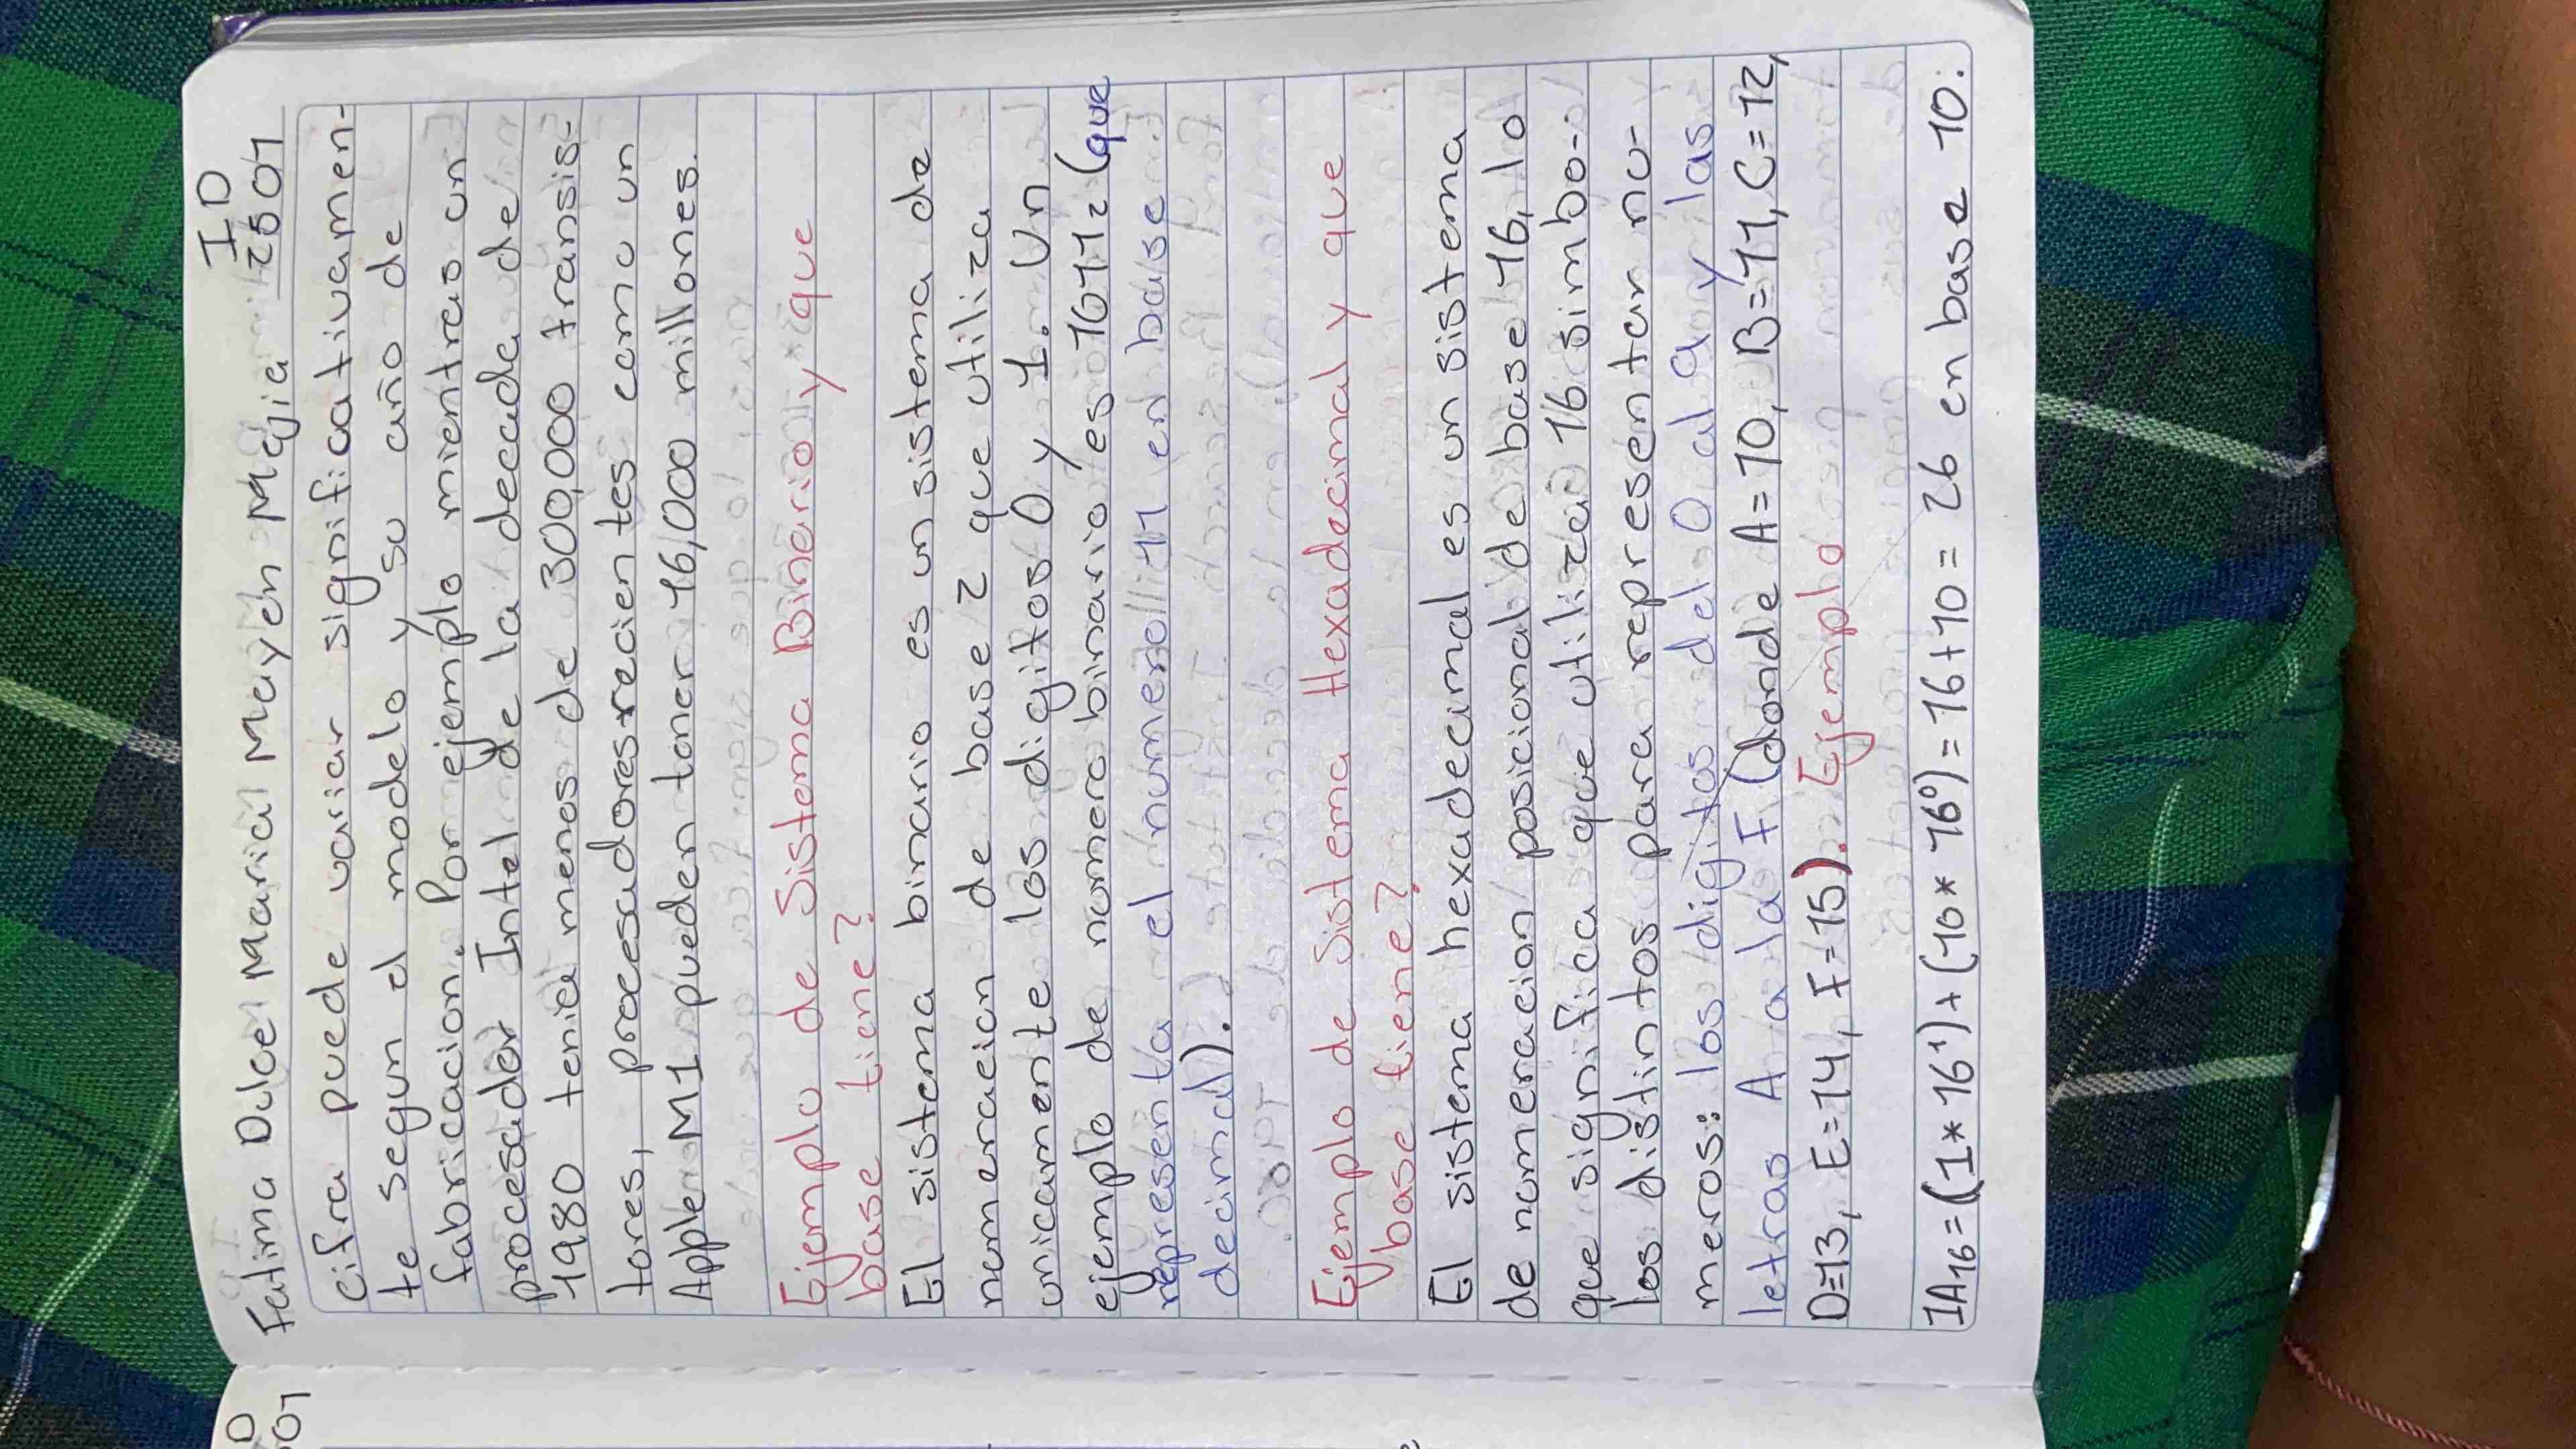 Fatima Dulce Maricial Mayen Mejia ID 2501
cifra puede variar significativamen-
te segun el modelo y su año de
fabricacion. Por ejemplo mientras un
procesador Intel de la decada de
1980 tenia menos de 300,000 transis-
tores, procesadores recientes como un
Apple M1 pueden tener 16,000 millones.
Ejemplo de Sistema Binario y que
base tiene?
El sistema binario es un sistema de
numeracion de base 2 que utiliza
unicamente los digitos 0 y 1. Un
ejemplo de numero binario es 1011₂ (que
representa el numero 11 en base
decimal).
Ejemplo de Sistema Hexadecimal y que
base tiene?
El sistema hexadecimal es un sistema
de numeracion posicional de base 16, lo
que significa que utiliza 16 simbo-
los distintos para representar nu-
meros: los digitos del 0 al 9 y las
letras A a la F (donde A=10, B=11, C=12,
D=13, E=14, F=15). Ejemplo
1A₁₆=(1*16¹)+(10*16⁰)=16+10=26 en base 10.
D
01